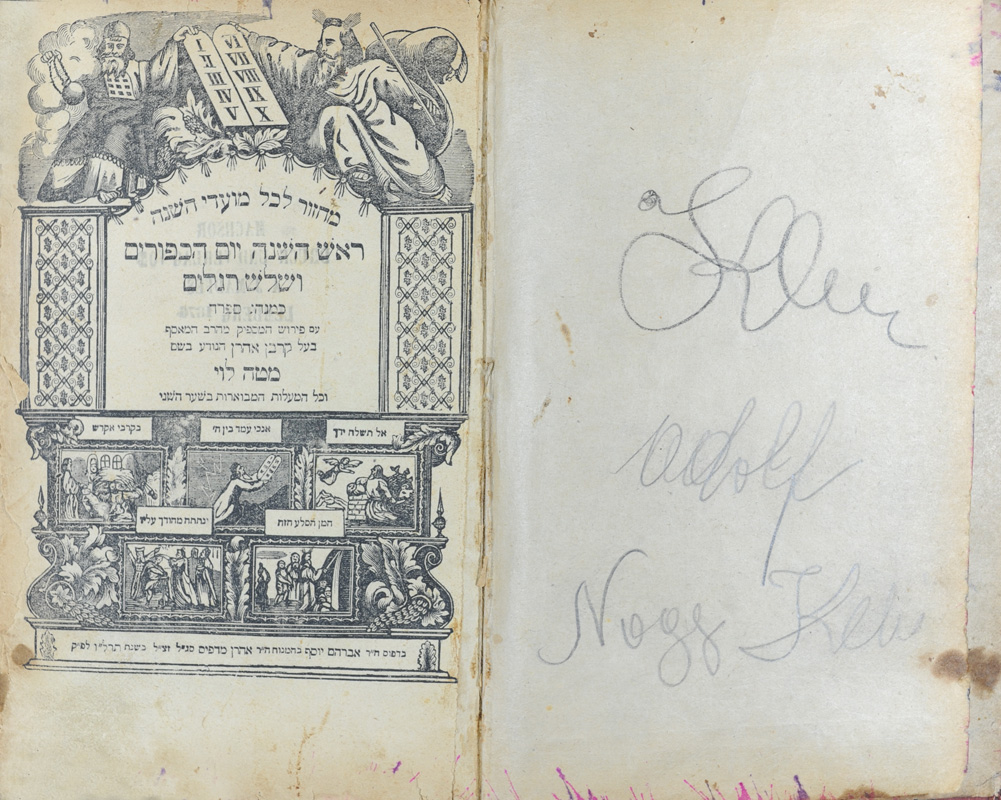 I VI
II VII
III VIII
IV IX
V X
מחזור לכל מועדי השנה
ראש השנה יום הכפורים
ושלש רגלים
כמנהג ספרד
עם פירוש המספיק מהרב המאסף
בעל קרבן אהרן הנודע בשם
מטה לוי
וכל המעלות המבוארות בשער השני
בקרבי אקדש אנכי עמד בין ה' אל תשלח ידך
ונתתה מהודך עליו המן הסלע הזה
בדפוס ה"ר אברהם יוסף בהמנוח ה"ר אהרן מדפיס סג"ל זצ"ל בשנת תרל"ו לפ"ק
Adolf
Nogg